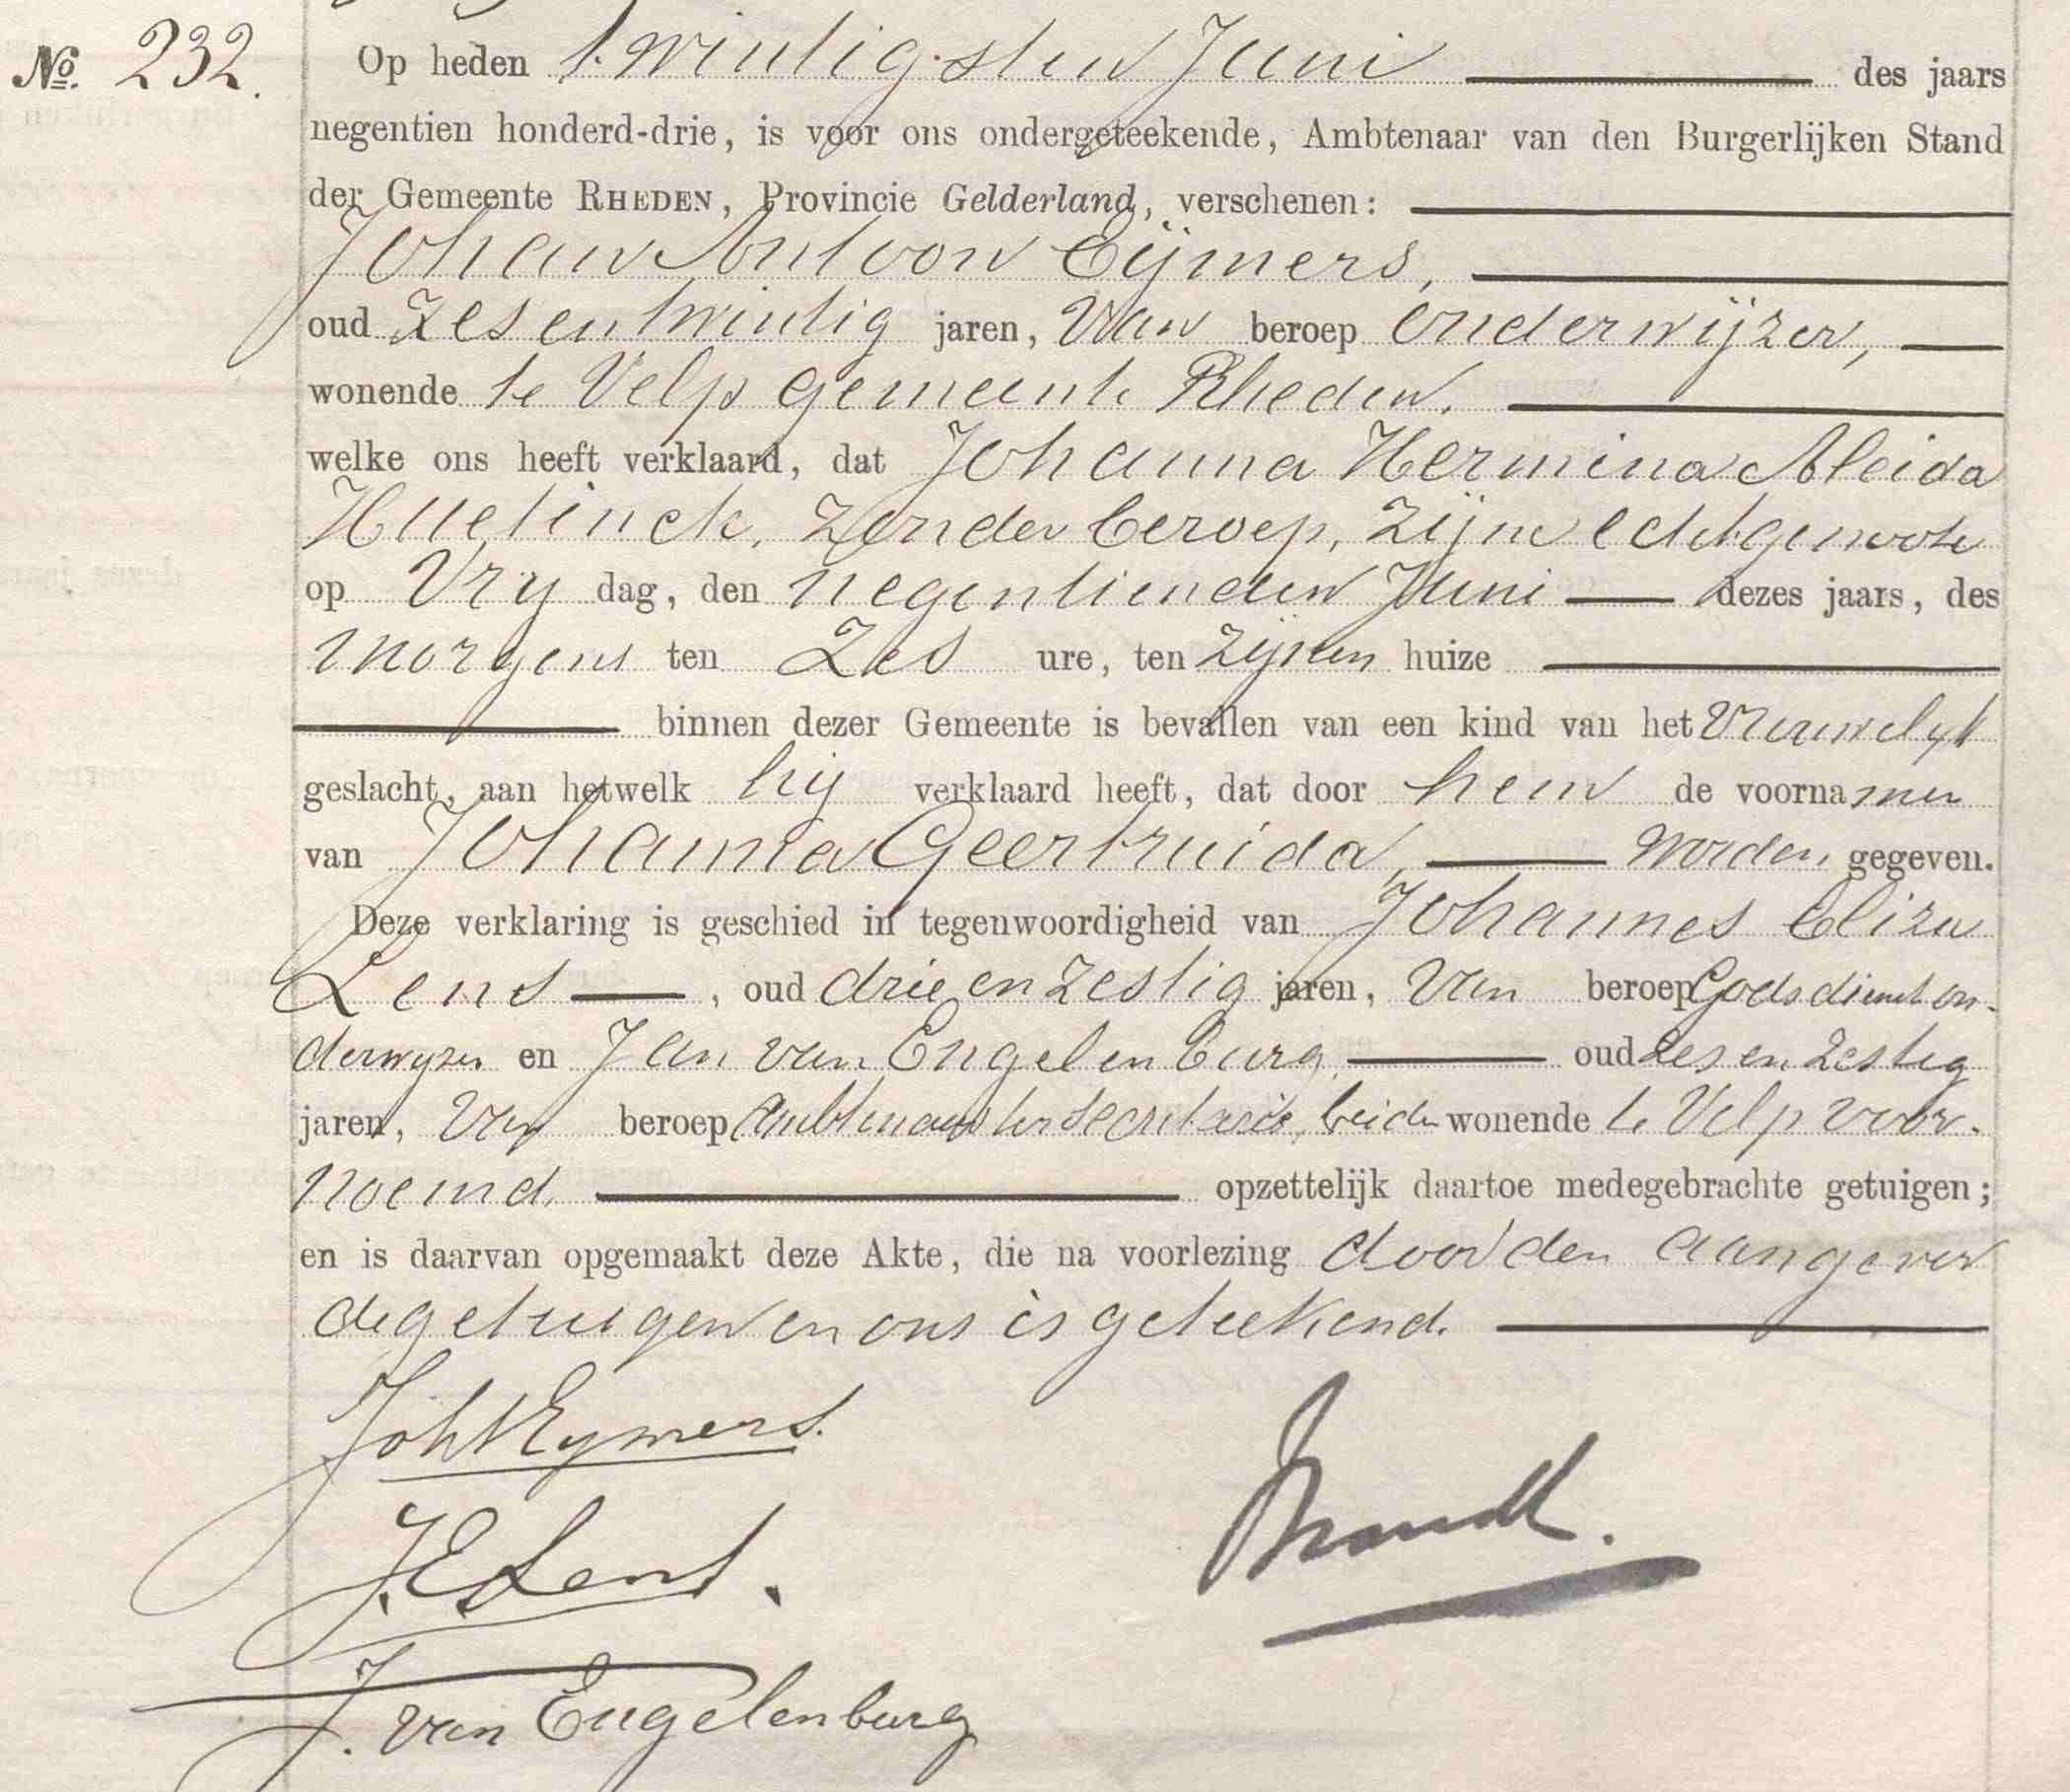 No. 232.
Op heden twintigsten Juni des jaars
negentien honderd-drie, is voor ons ondergeteekende, Ambtenaar van den Burgerlijken Stand
der Gemeente RHEDEN, Provincie Gelderland, verschenen:
Johan Antoon Eijmers,
oud zes en twintig jaren, van beroep onderwijzer,
wonende te Velp gemeente Rheden,
welke ons heeft verklaard, dat Johanna Hermina Aleida
Huetinck, zonder beroep, zijne echtgenoote
op Vrij dag, den negentienden Juni dezes jaars, des
morgens ten zes ure, ten zijnen huize
binnen dezer Gemeente is bevallen van een kind van het vrouwelijk
geslacht, aan hetwelk hij verklaard heeft, dat door hem de voornamen
van Johanna Geertruida, worden gegeven.
Deze verklaring is geschied in tegenwoordigheid van Johannes Eliza
Lens, oud drie en zestig jaren, van beroep Godsdienston-
derwijzer en Jan van Engelenburg, oud zes en zestig
jaren, van beroep ambtenaar ter secretarie, beiden wonende te Velp voor-
noemd. opzettelijk daartoe medegebrachte getuigen;
en is daarvan opgemaakt deze Akte, die na voorlezing door den aangever
de getuigen en ons is geteekend.
Joh A Eymers.
Brandt.
J. E Lens.
J. van Engelenburg